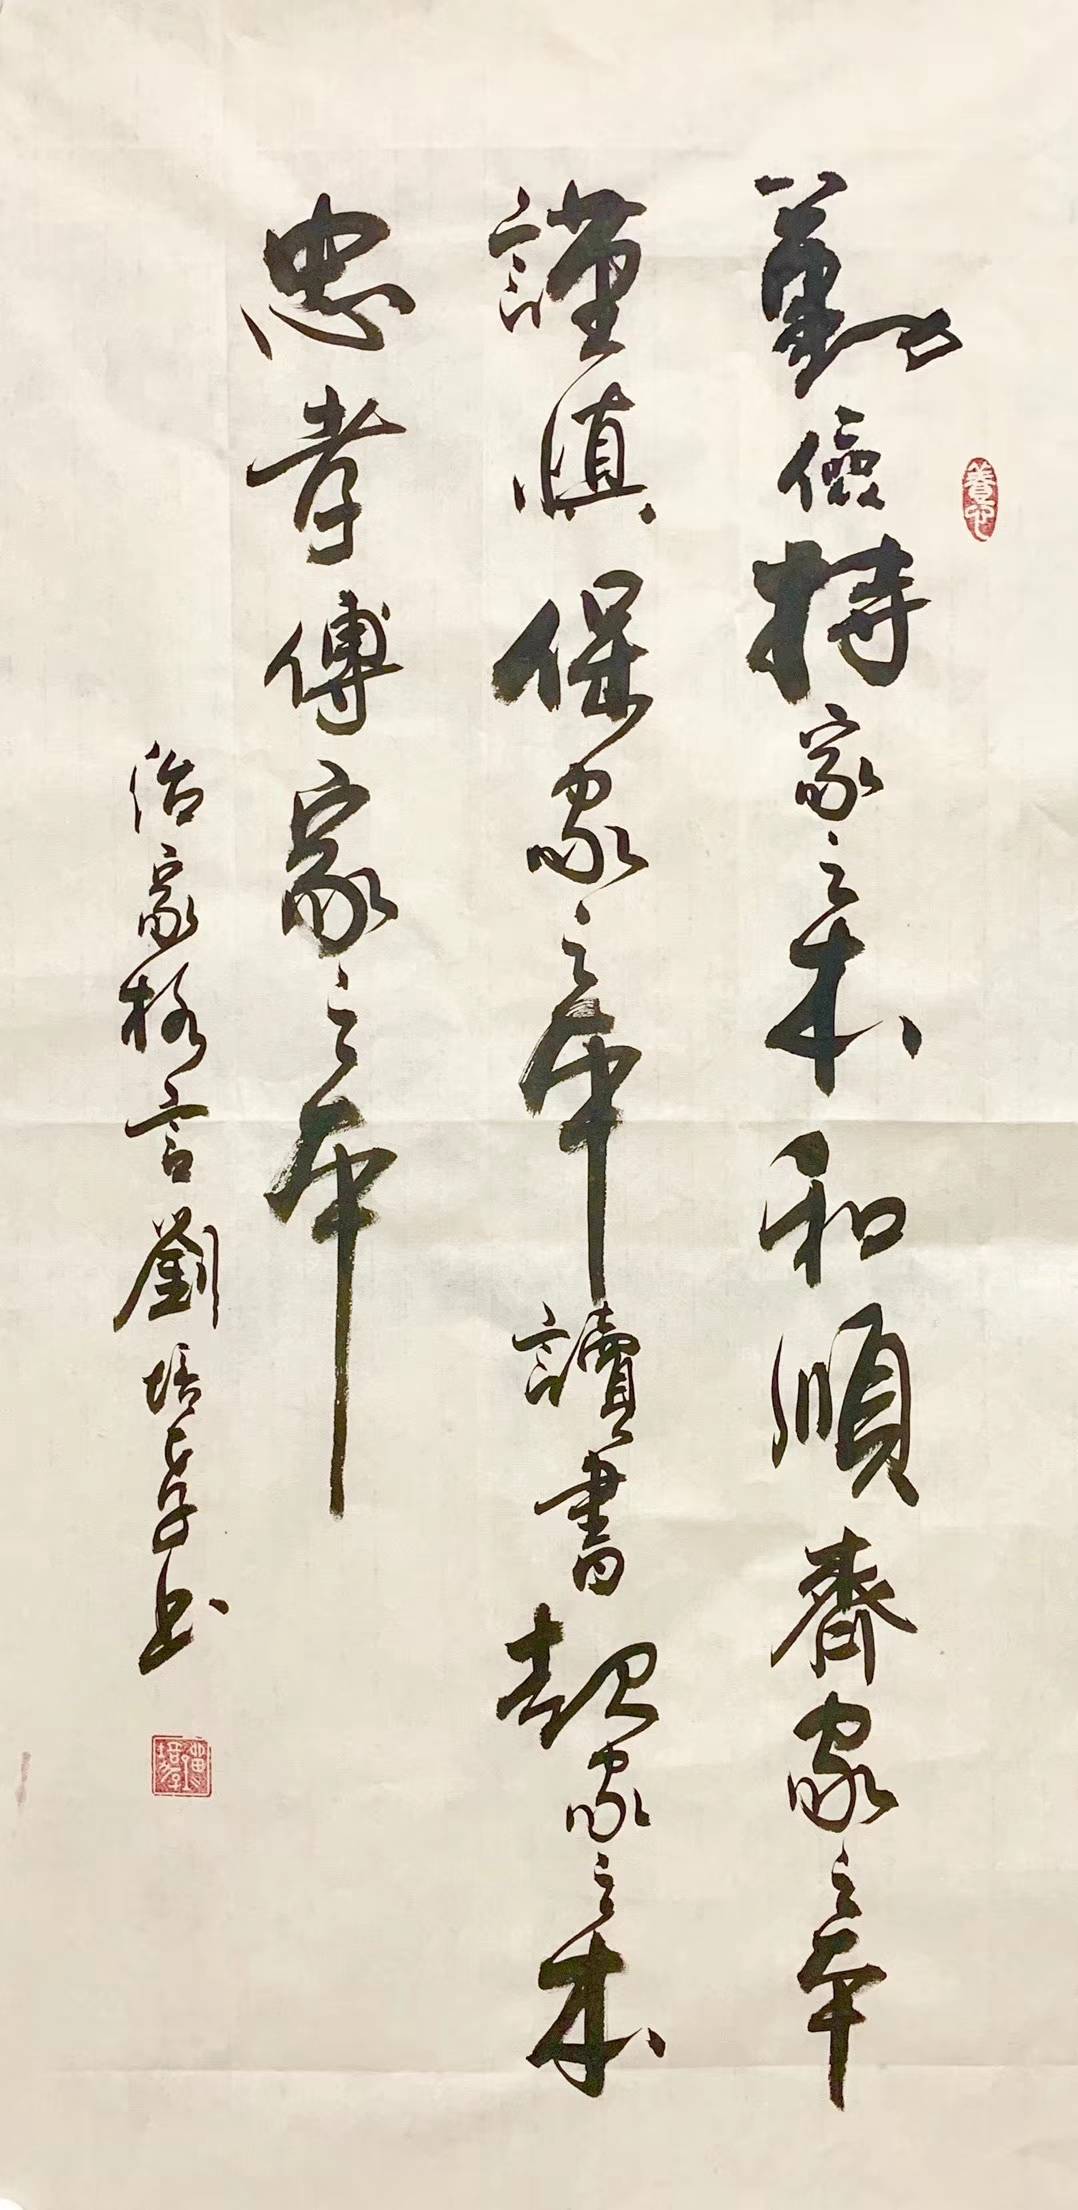 勤儉持家之本和順齊家之本
謹慎保家之本讀書起家之本
忠孝傳家之本
治家格言劉培孝书
養心